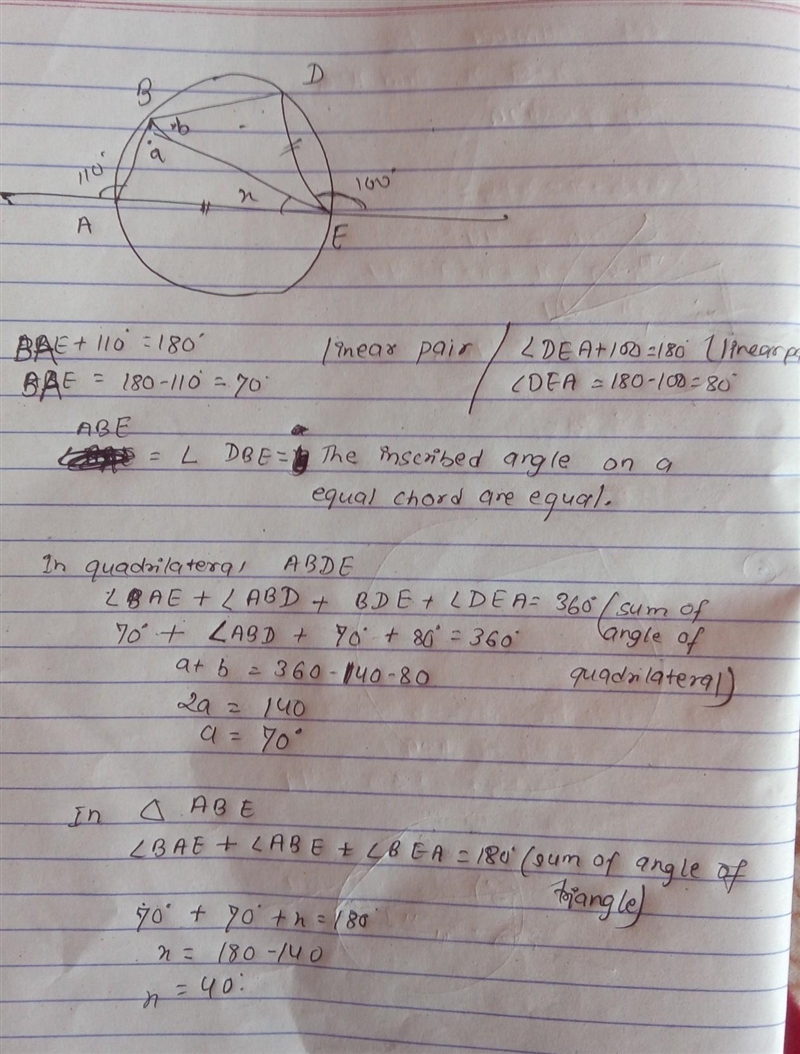 B D
b
a
110° x 100°
A E
BAE + 110° = 180° linear pair / ∠DEA + 100 = 180° (linear pa
BAE = 180 - 110° = 70° ∠DEA = 180 - 100 = 80°
ABE
= ∠ DBE = The inscribed angle on a
equal chord are equal.
In quadrilateral ABDE
∠BAE + ∠ABD + BDE + ∠DEA = 360° (sum of
70° + ∠ABD + 70° + 80° = 360° angle of
a + b = 360 - 140 - 80 quadrilateral)
2a = 140
a = 70°
In △ ABE
∠BAE + ∠ABE + ∠BEA = 180° (sum of angle of
triangle)
70° + 70° + x = 180°
x = 180 - 140
x = 40°